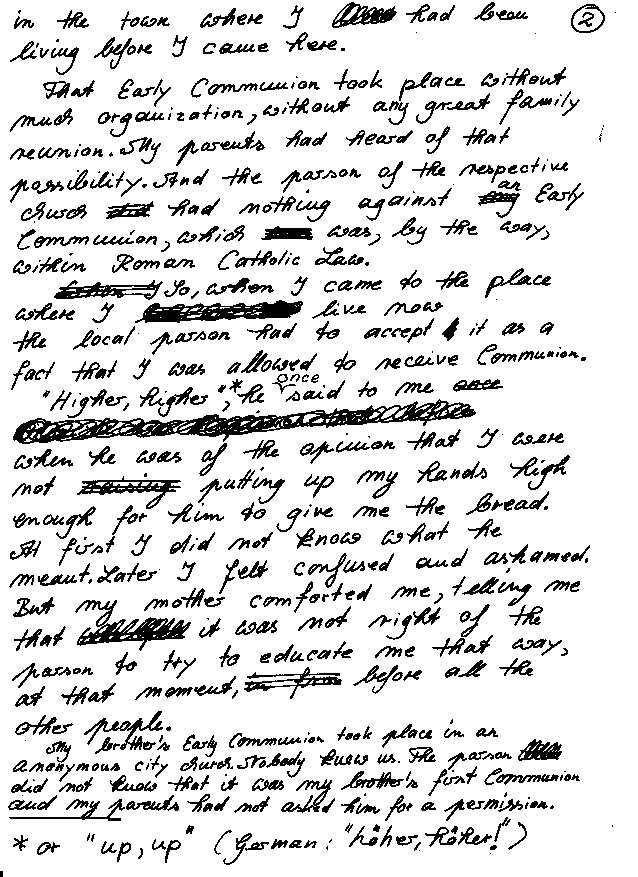 in the town where I had been
②
living before I came here.
That Early Communion took place without
much organization, without any great family
reunion. My parents had heard of that
possibility. And the parson of the respective
church had nothing against an Early
Communion, which was, by the way,
within Roman Catholic Law.
So, when I came to the place
where I live now
the local parson had to accept it as a
fact that I was allowed to receive Communion.
"Higher, higher",* he once said to me once
when he was of the opinion that I were
not raising putting up my hands high
enough for him to give me the bread.
At first I did not know what he
meant. Later I felt confused and ashamed.
But my mother comforted me, telling me
that it was not right of the
parson to try to educate me that way,
at that moment, in fron before all the
other people.
My brother's Early Communion took place in an
anonymous city church. Nobody knew us. The parson
did not know that it was my brother's first Communion
and my parents had not asked him for a permission.
* or "up, up" (German: "höher, höher!")